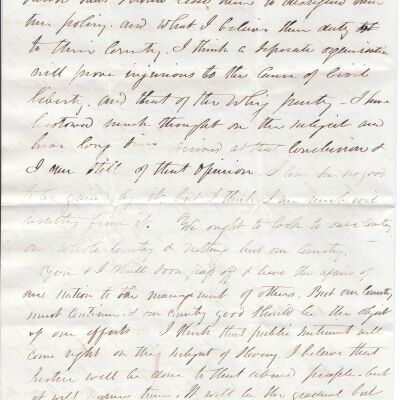 should lead them to disregard their
own policy. and what I believe their duty
to their Country. I think a seperate organization
will prove injurious to the cause of Civil
liberty. and that of the Whig party - I have
bestowed much thought on the subject and
have long since arrived at that Conclusion &
I am still of that Opinion. I can see no good
to be gained by it. but I think I see much evil
resulting from it. We ought to look to our Country
our whole Country & nothing but our Country.
You & I shall soon pass off & leave the affairs of
our nation to the management of others. But our Country
must continue. & our Country good should be the object
of our efforts. I think that public sentiment will
come right on this subject of Slavery. I believe that
Justice will be done to that abused people. but
it will require time. It will be the gradual but